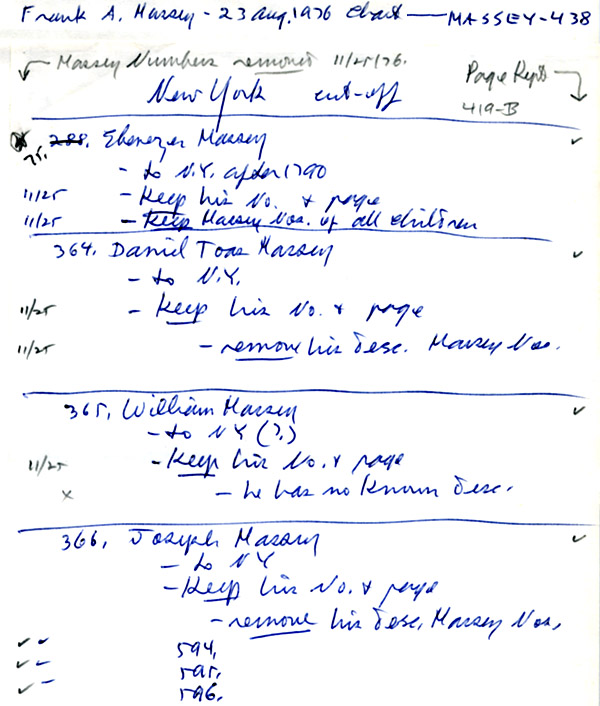 Frank A. Massey - 23 Aug, 1976 Chart — MASSEY-438
Massey Numbers removed 11/25/76.
Page Repts
New York cut-off
419-B
75. 288. Ebenezer Massey ✓
- to N.Y. after 1790
11/25 - Keep his No. & page
11/25 - Keep Massey Nos. of all children
364. Daniel Toas Massey ✓
- to N.Y.
11/25 - Keep his No. & page
11/25 - remove his Desc. Massey Nos.
365. William Massey ✓
- to NY (?)
11/25 - Keep his No. & page
x - he has no known Desc.
366. Joseph Massey ✓
- to NY
- Keep his No. & page
- remove his Desc. Massey Nos.
✓ ✓ 594.
✓ - 595.
✓ - 596.